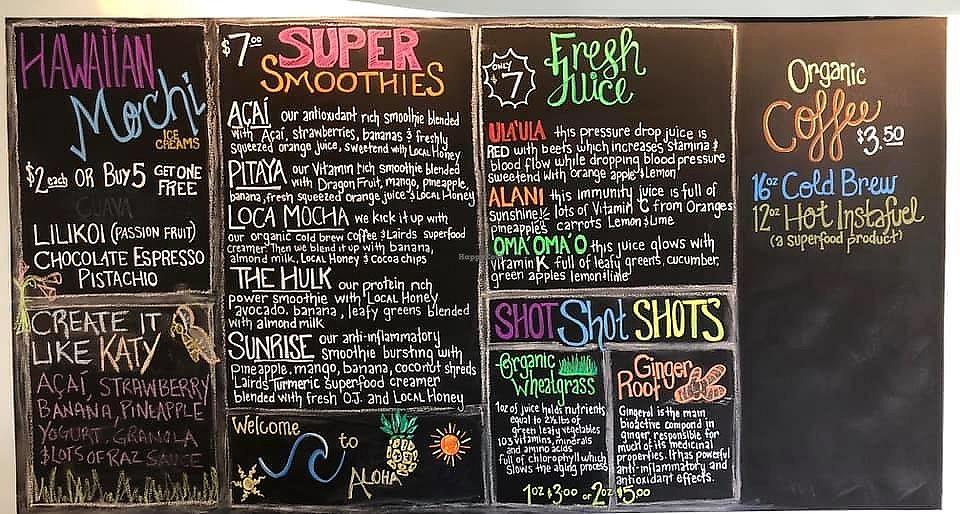 HAWAiiAN
Mochi
ICE
CREAMS
$2 each OR BUY 5 GET ONE
FREE
GUAVA
LILIKOI (PASSION FRUIT)
CHOCOLATE ESPRESSO
PISTACHIO
CREATE IT
LIKE KATY
AÇAÍ, STRAWBERRY
BANANA, PINEAPPLE
YOGURT, GRANOLA
& LOTS OF RAZ SAUCE
$7.00 SUPER
SMOOTHIES
AÇAÍ our antioxidant rich smoothie blended
with Açaí, strawberries, bananas & freshly
squeezed orange juice, sweetend with LOCAL Honey
PITAYA our Vitamin rich smoothie blended
with Dragon Fruit, mango, pineapple,
banana, fresh squeezed orange juice & LOCAL Honey
LOCA MOCHA we kick it up with
our organic cold brew coffee & Lairds superfood
creamer. Then we blend it up with banana,
almond milk, LOCAL Honey & cocoa chips
THE HULK our protein rich
power smoothie with LOCAL Honey
avocado, banana, leafy greens blended
with almond milk
SUNRISE our anti-inflammatory
smoothie bursting with
Pineapple, mango, banana, coconut shreds
Lairds Turmeric superfood creamer
blended with fresh O.J. and LOCAL Honey
Welcome
to
ALOHA
ONLY
$7
Fresh
Juice
ULA'ULA this pressure drop juice is
RED with beets which increases stamina &
blood flow while dropping blood pressure
sweetend with orange apple & Lemon
ALANI this immunity juice is full of
sunshine & lots of Vitamin C from Oranges
pineapples carrots Lemon & Lime
'OMA'OMA'O this juice glows with
Vitamin K full of leafy greens, cucumber,
green apples lemon & lime
SHOT Shot SHOTS
Organic
Wheatgrass
1oz of juice holds nutrients
equal to 2½ lbs of
green leafy vegetables
103 vitamins, minerals
and amino acids
full of chlorophyll which
slows the aging process
Ginger
Root
Gingerol is the main
bioactive compond in
ginger, responsible for
much of its medicinal
properties. It has powerful
anti-inflammatory and
antioxidant effects.
1oz $3.00 or 2oz $5.00
Organic
Coffee
$3.50
16oz Cold Brew
12oz Hot Instafuel
(a superfood product)